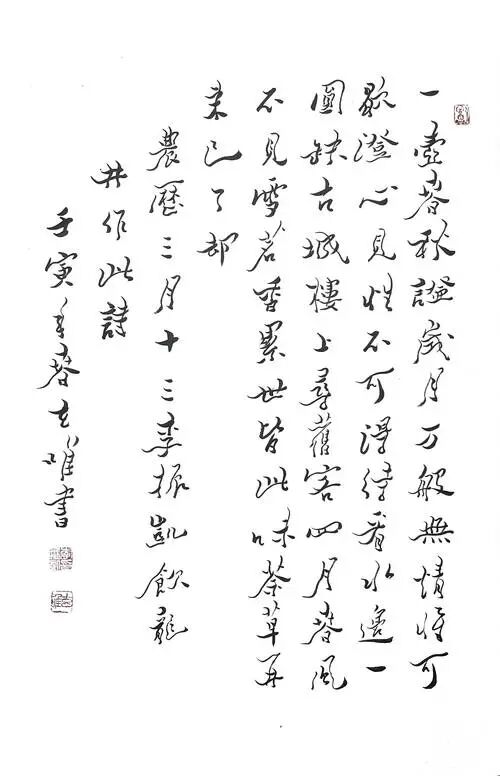 一壺春秋證歲月万般無情惟可
歇澄心見性不可得待看水邊一
圓缺古城樓上尋舊客四月春風
不見雪茗香累世皆此味茶草再
来已了却
農歷三月十三李振凱飲龍
井作此詩
壬寅年春唯書